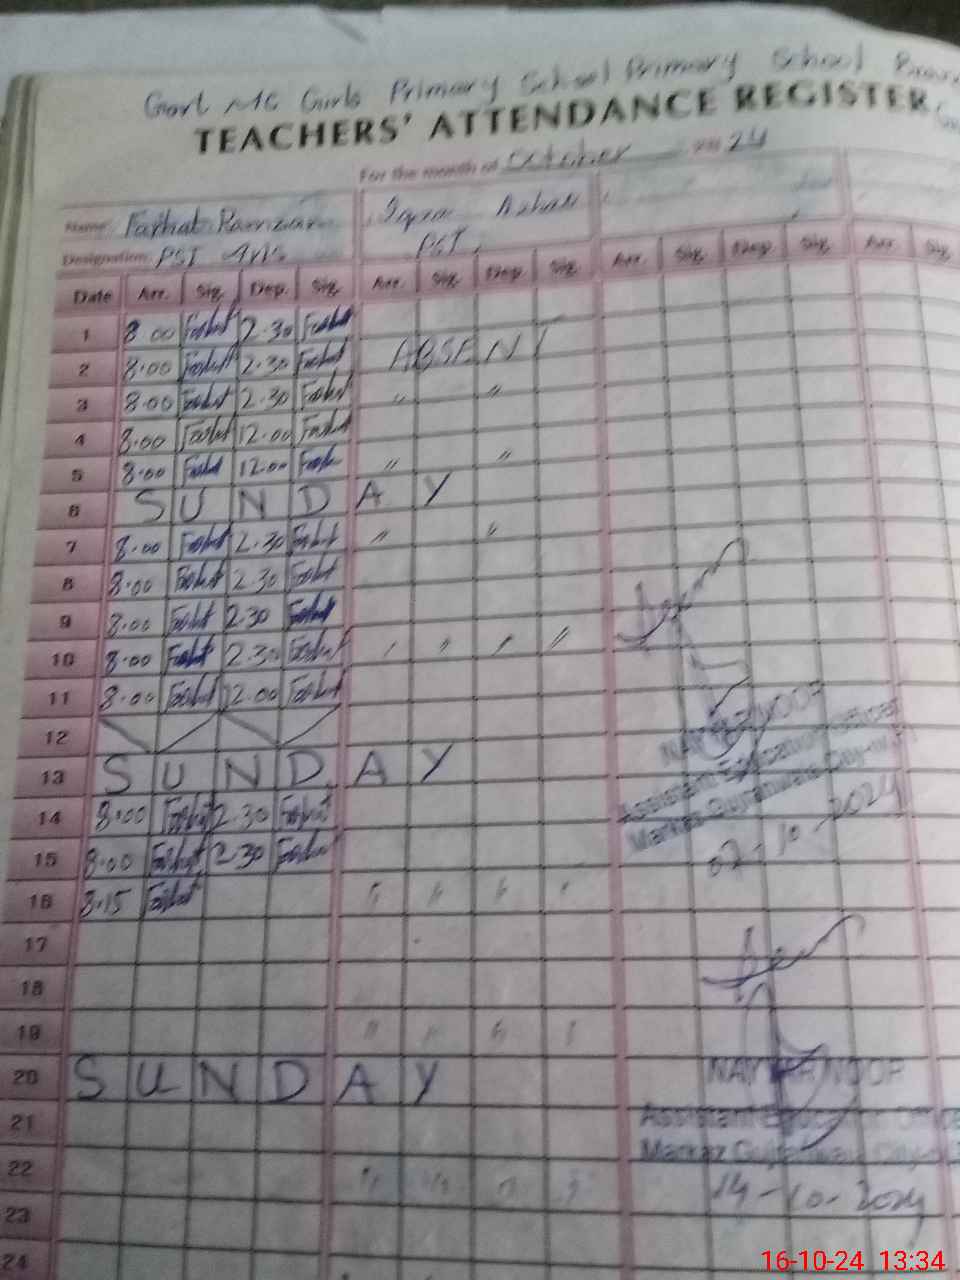 Govt MC Girls Primary School Primary School
TEACHERS' ATTENDANCE REGISTER
For the month of October 2024
Name Farhat Iqra
Designation PST PST
Arr. Sig. Dep. Sig. Arr. Sig.
Date Arr. Sig. Dep. Sig. Arr. Sig. Dep. Sig.
1 8.00 Farhat 2.30 Farhat
2 8.00 Farhat 2.30 Farhat ABSENT
3 8.00 Farhat 2.30 Farhat " "
4 8.00 Farhat 12.00 Farhat
5 8.00 Farhat 12.00 Farhat " "
6 SUNDAY
7 8.00 Farhat 2.30 Farhat " "
8 8.00 Farhat 2.30 Farhat
9 8.00 Farhat 2.30 Farhat
10 8.00 Farhat 2.30 Farhat " " " "
11 8.00 Farhat 12.00 Farhat
12
NAYYAR NOOR
13 SUNDAY
Assistant Education Officer
14 8.00 Farhat 2.30 Farhat
Markaz Gujranwala City
15 8.00 Farhat 2.30 Farhat
-10-2024
16 8.15 Farhat " " " "
17
18
19 " " " "
20 SUNDAY
NAYYAR NOOR
21
Assistant Education Office
Markaz Gujranwala City
22 " " " "
14-10-2024
23
24
16-10-24 13:34